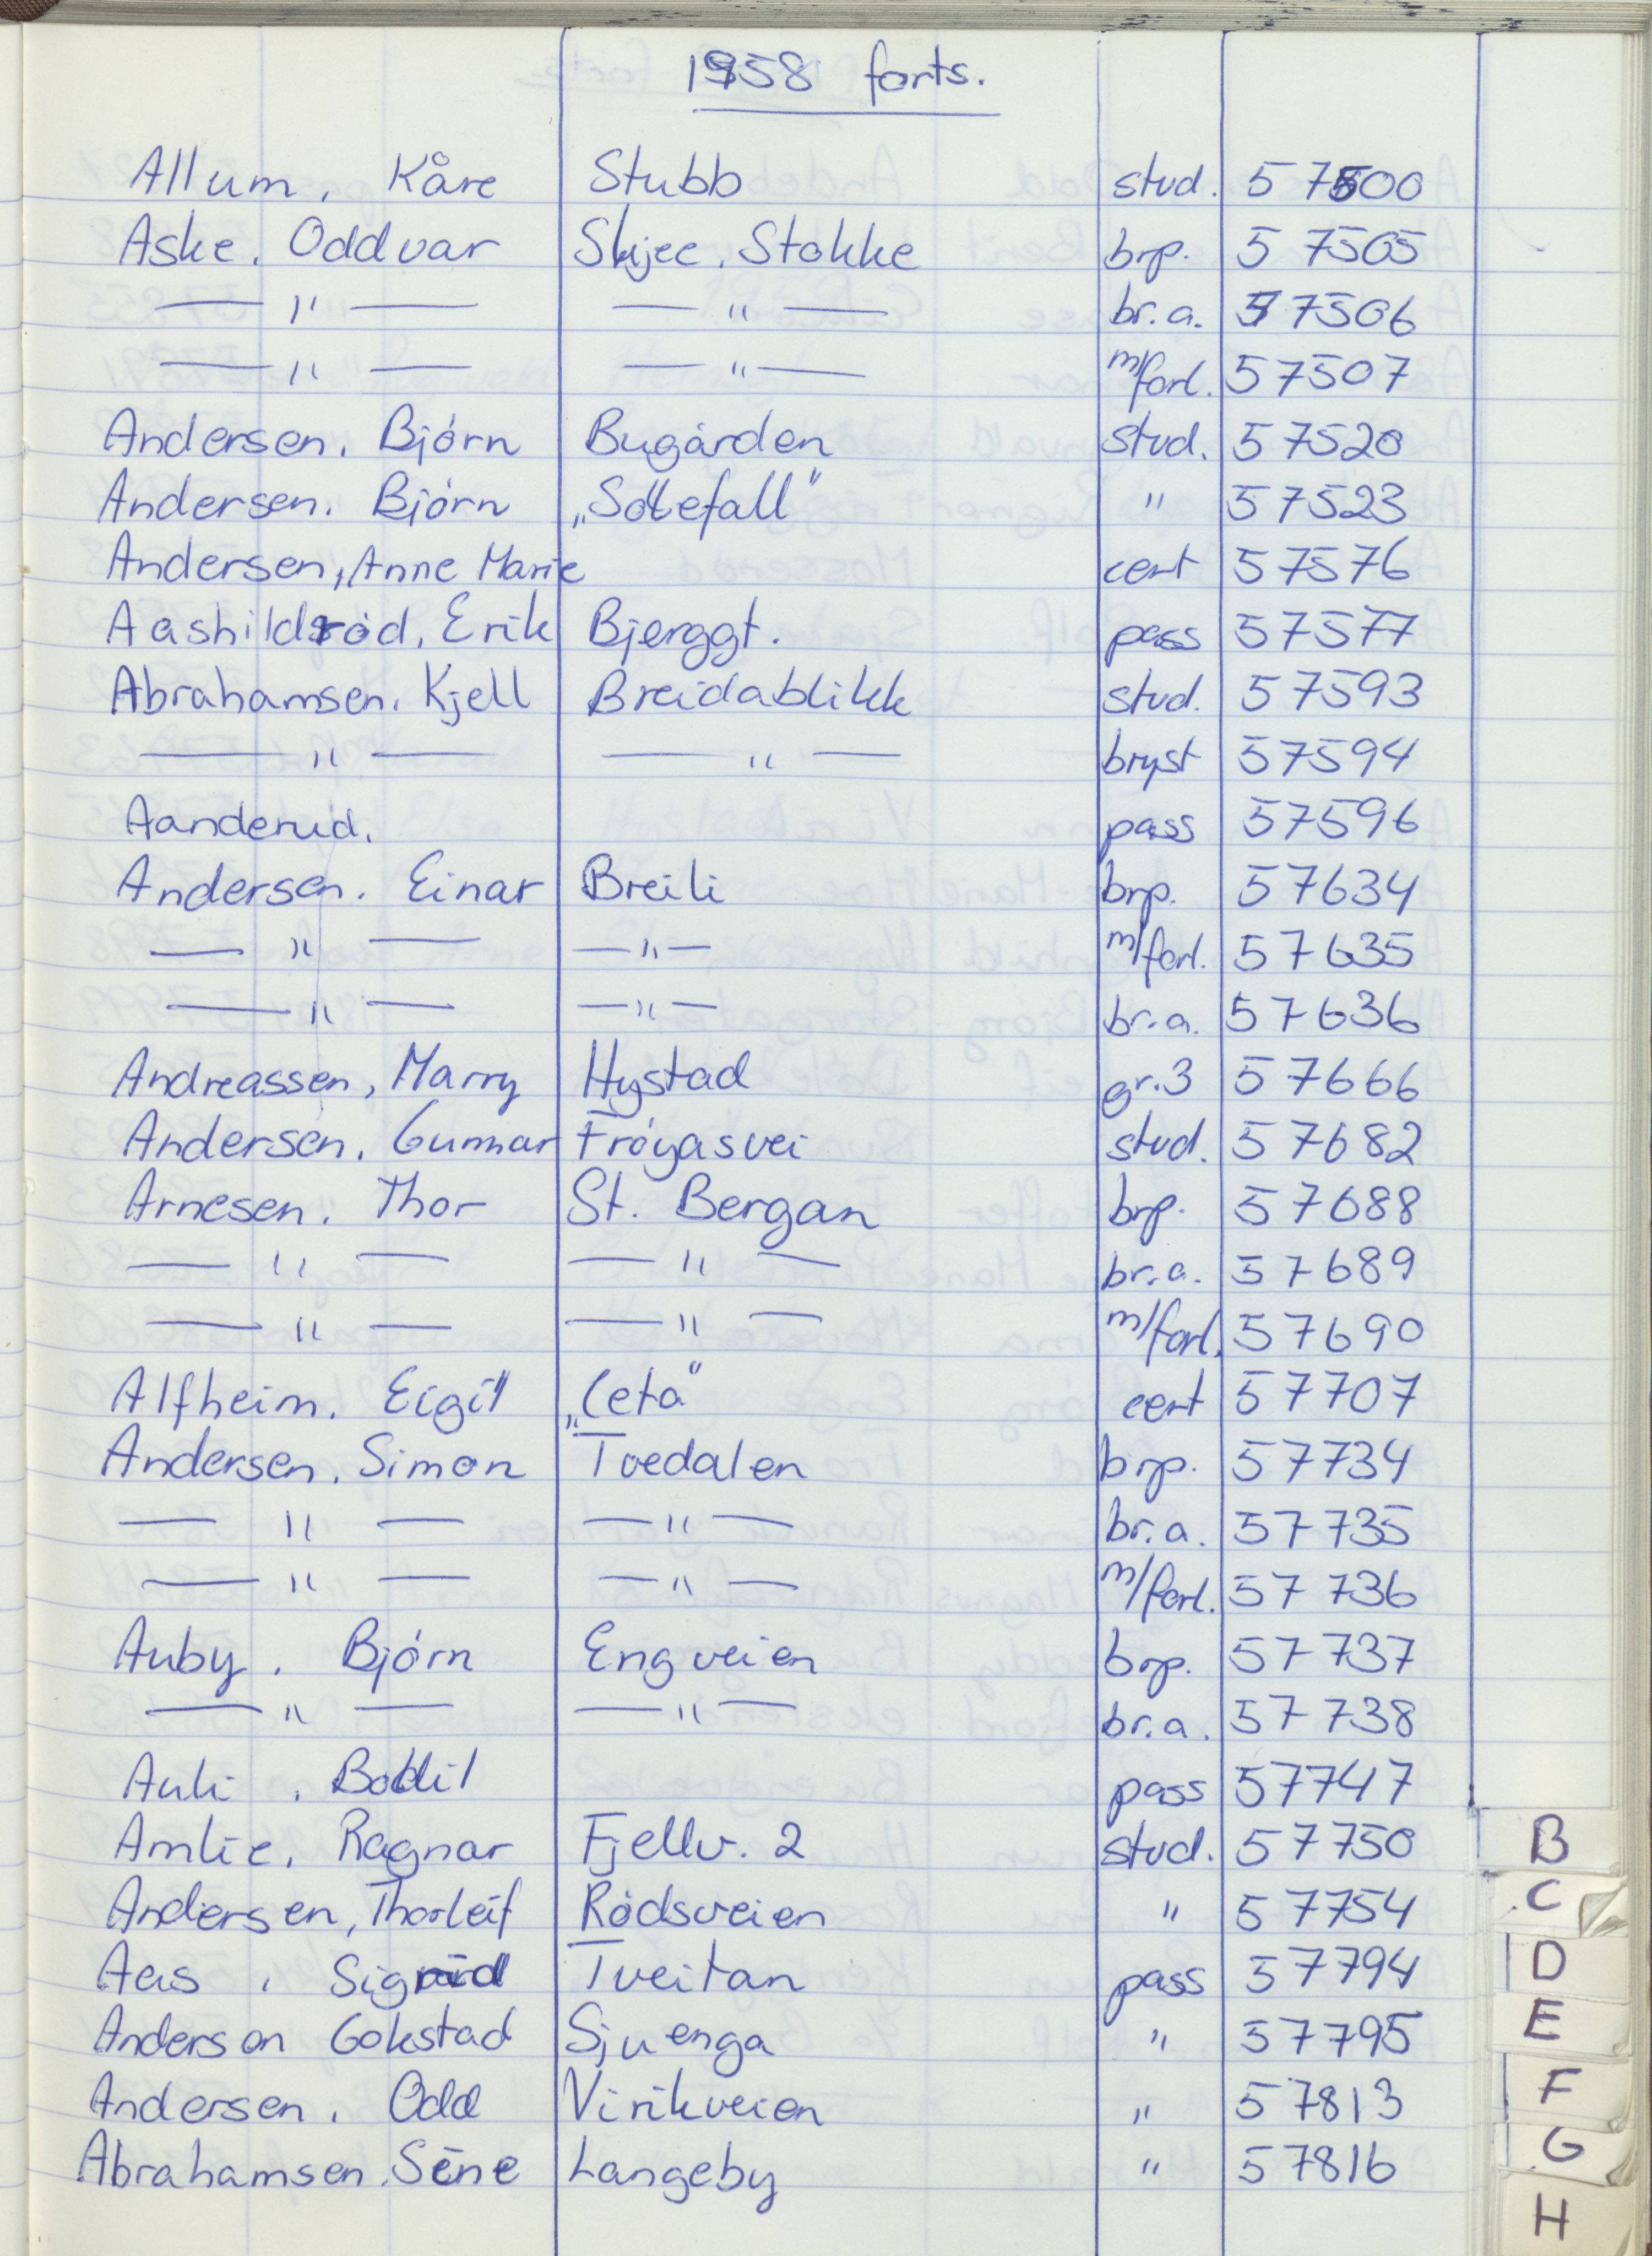 1958 forts.
Allum, Kåre Stubb stud. 57500
Aske, Oddvar Skjee, Stokke brp. 57505
— " — — " — br.a. 57506
— " — — " — m/forl. 57507
Andersen, Bjørn Bugården stud. 57520
Andersen, Bjørn „Solefall" " 57523
Andersen, Anne Marie cert 57576
Aashildrød, Erik Bjerggt. pass 57577
Abrahamsen, Kjell Breidablikk stud. 57593
— " — — " — bryst 57594
Aanderud, pass 57596
Andersen, Einar Breili brp. 57634
— " — — " — m/forl. 57635
— " — — " — br.a. 57636
Andreassen, Marry Hystad gr.3 57666
Andersen, Gunnar Frøyasvei stud. 57682
Arnesen, Thor St. Bergan brp. 57688
— " — — " — br.a. 57689
— " — — " — m/forl. 57690
Alfheim, Eigil „Ceta" cert 57707
Andersen, Simon Tvedalen brp. 57734
— " — — " — br.a. 57735
— " — — " — m/forl. 57736
Auby, Bjørn Engveien brp. 57737
— " — — " — br.a. 57738
Auli, Bodil pass 57747
Amlie, Ragnar Fjellv. 2 stud. 57750
Andersen, Thorleif Rødsveien " 57754
Aas, Sigrid Tveitan pass 57794
Anderson Gokstad Sjuenga " 57795
Andersen, Odd Virikveien " 57813
Abrahamsen, Sine Langeby " 57816
B
C
D
E
F
G
H